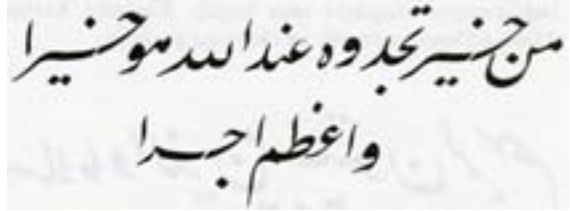 من خیر تجدوه عند الله هو خیرا
واعظم اجرا